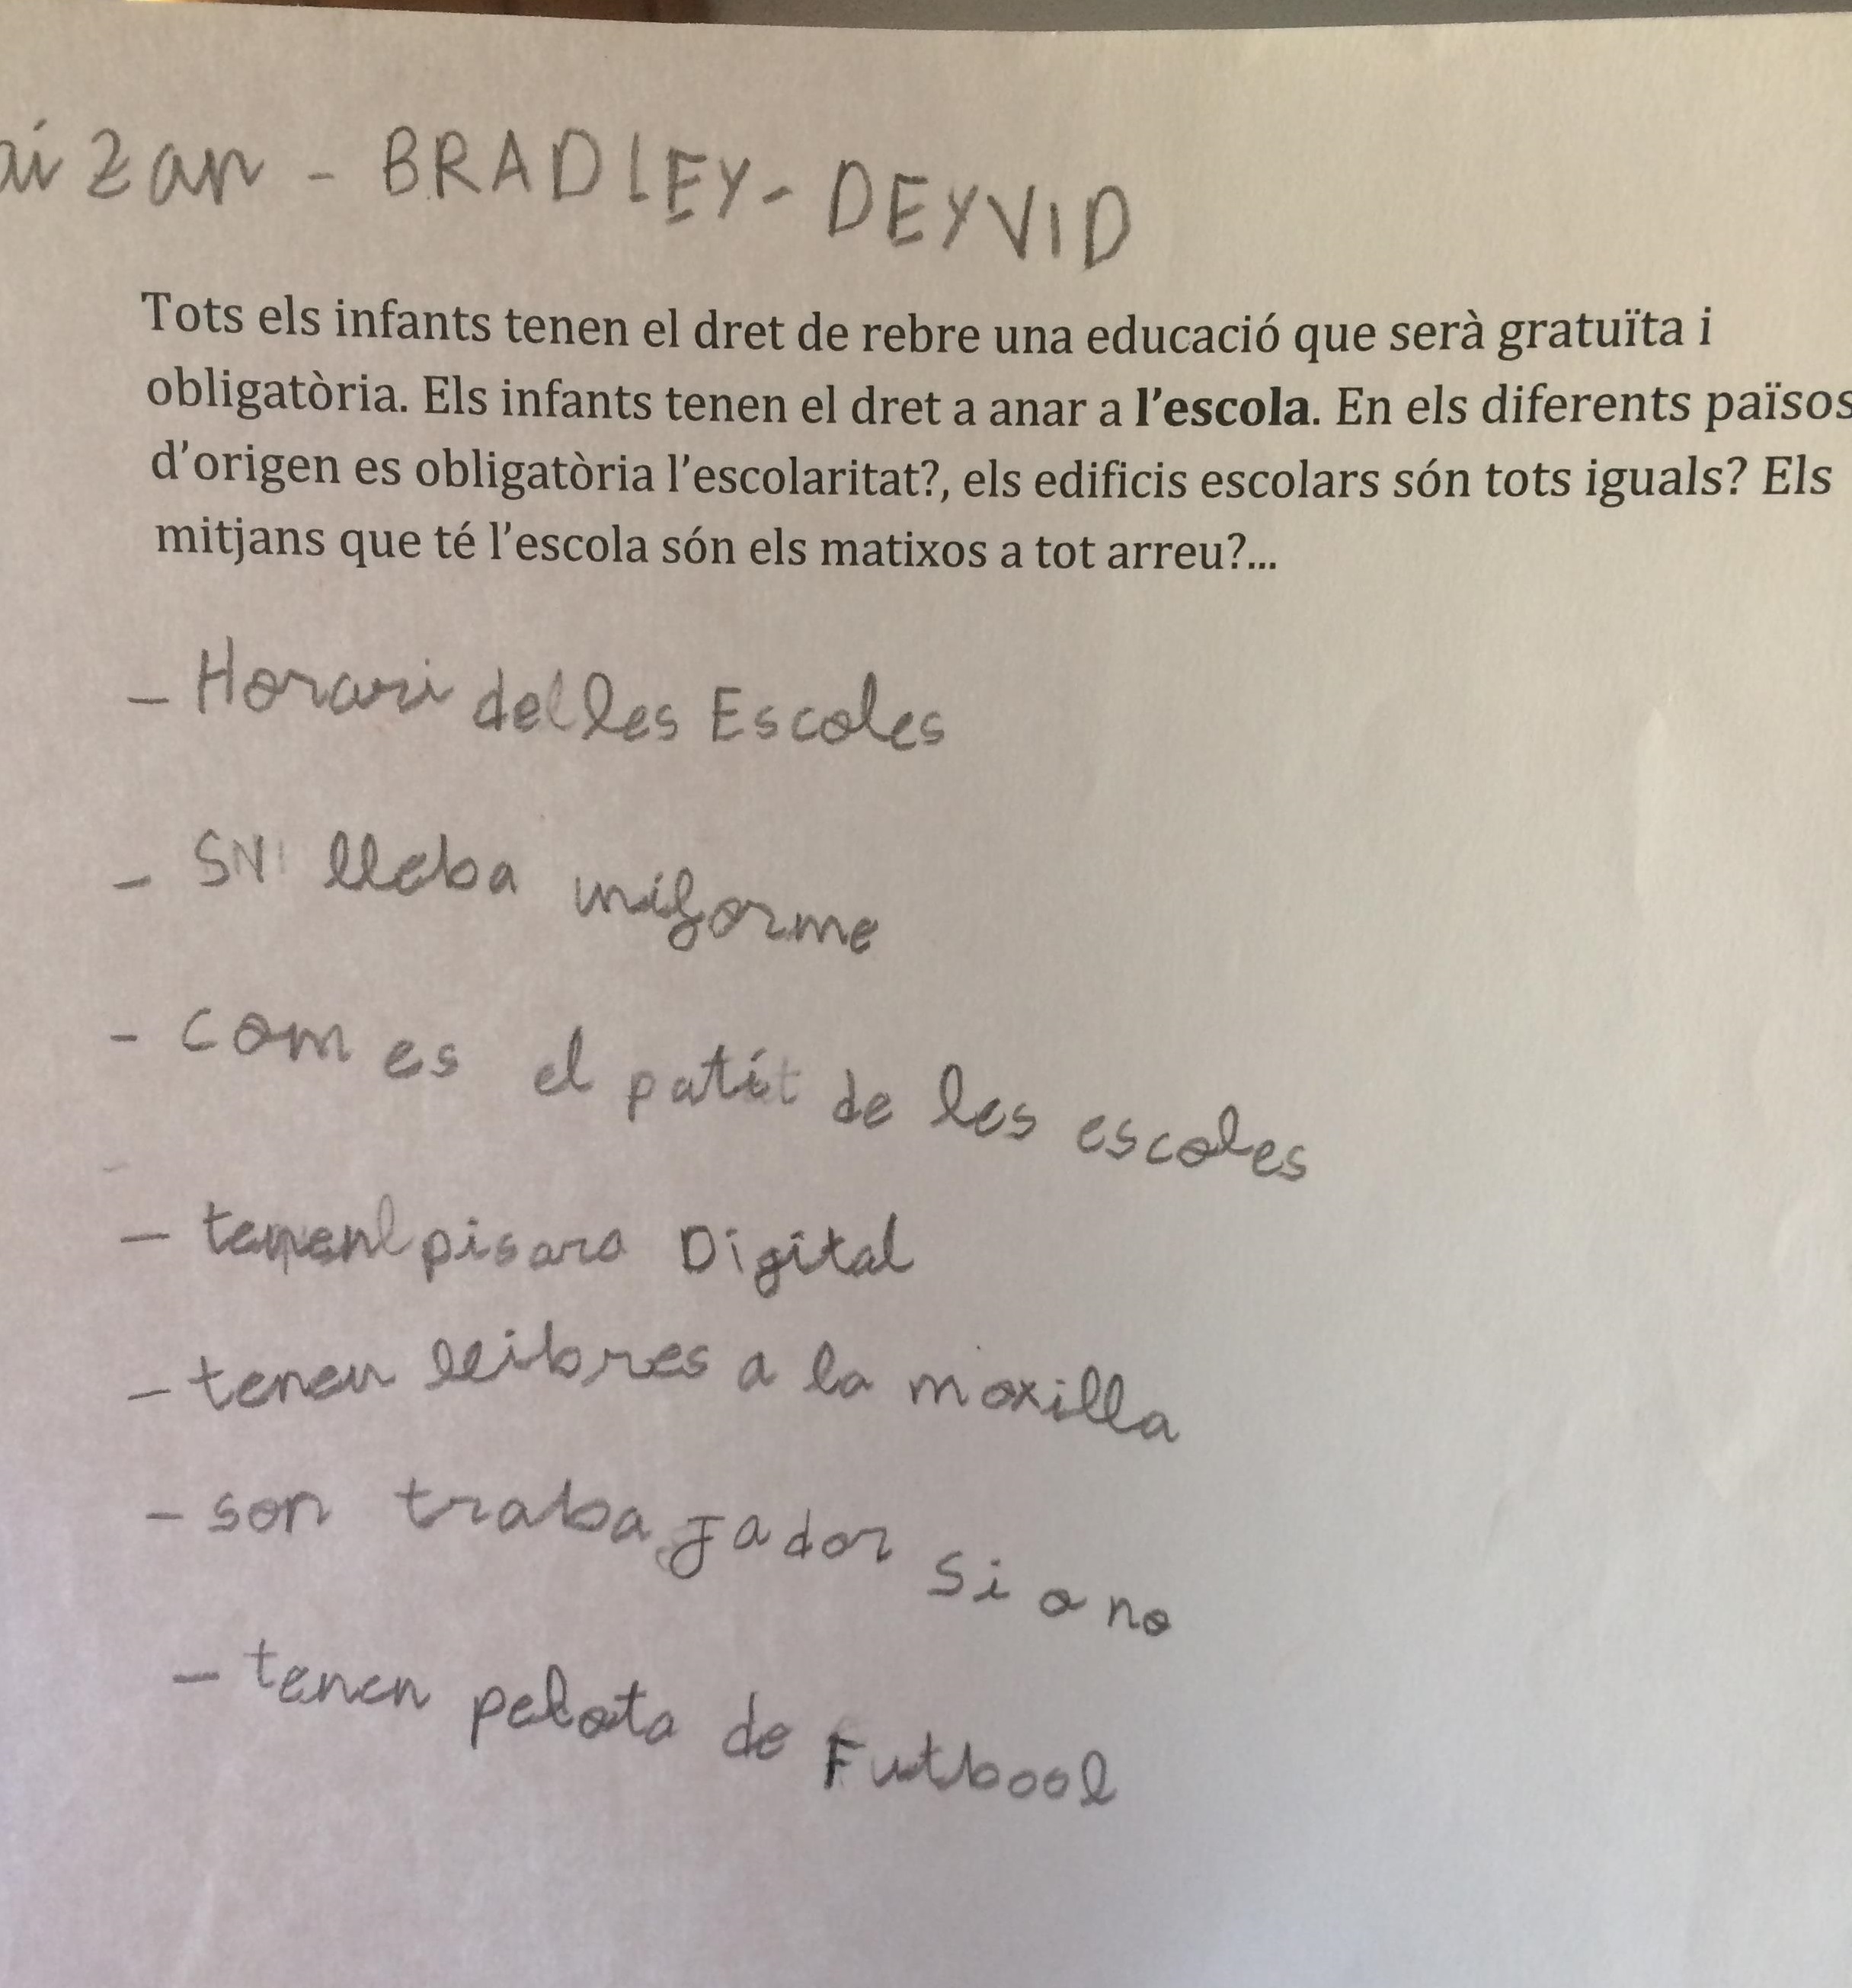 aizan - BRADLEY - DEYVID
Tots els infants tenen el dret de rebre una educació que serà gratuïta i
obligatòria. Els infants tenen el dret a anar a l'escola. En els diferents països
d'origen es obligatòria l'escolaritat?, els edificis escolars són tots iguals? Els
mitjans que té l'escola són els matixos a tot arreu?...
- Horari delles Escoles
- lleba uniforme
- com es el patit de les escoles
- tenen pisara Digital
- tenen llibres a la moxilla
- son trabajador si o no
- tenen pelota de Futbool